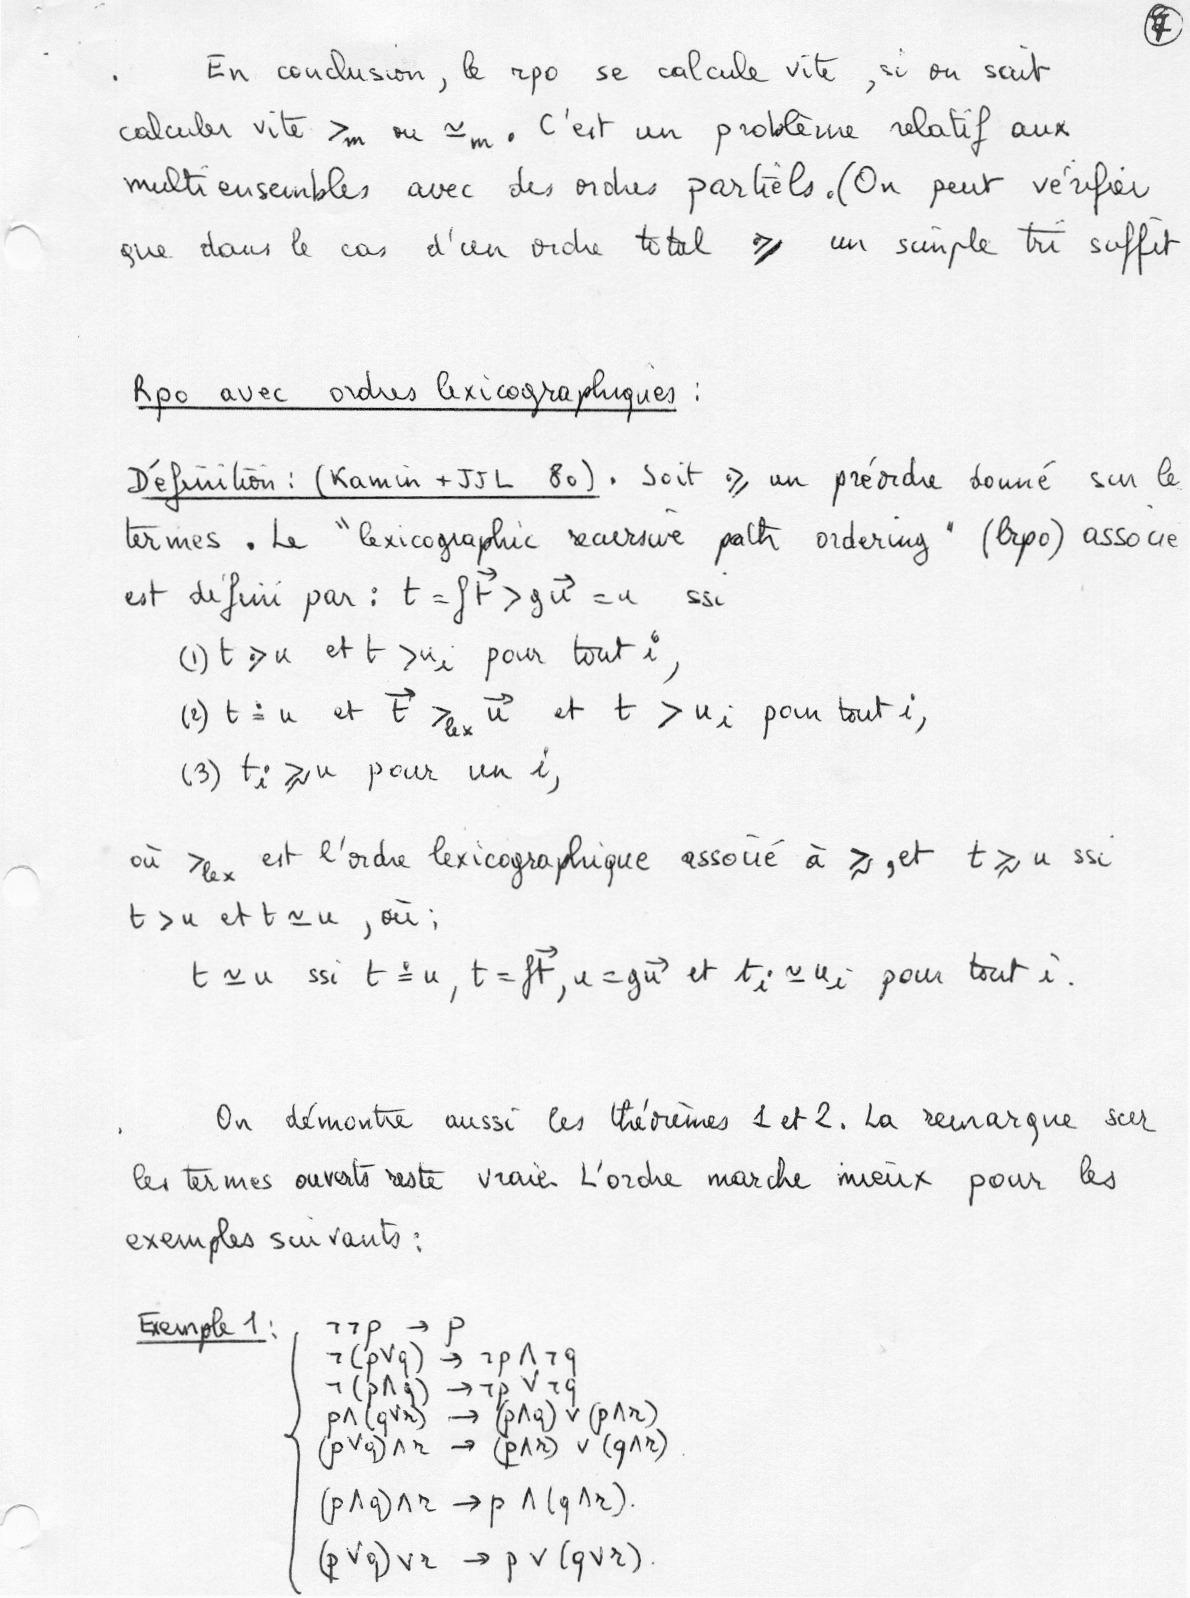 7
En conclusion, le rpo se calcule vite, si on sait
calculer vite >m ou ≃m. C'est un problème relatif aux
multiensembles avec des ordres partiels. (On peut vérifier
que dans le cas d'un ordre total ⩾ un simple tri suffit
Rpo avec ordres lexicographiques :
Définition : (Kamin + JJL 80). Soit ⩾ un préordre donné sur le
termes. Le "lexicographic recursive path ordering" (lrpo) associé
est défini par : t = f t⃗ > g u⃗ = u ssi
(1) t ⋗ u et t > ui pour tout i,
(2) t ≐ u et t⃗ >lex u⃗ et t > ui pour tout i,
(3) ti ⪎ u pour un i,
où >lex est l'ordre lexicographique associé à ⪎, et t ⪎ u ssi
t > u et t ≃ u, où :
t ≃ u ssi t ≐ u, t = f t⃗, u = g u⃗ et ti ≃ ui pour tout i.
On démontre aussi les théorèmes 1 et 2. La remarque sur
les termes ouverts reste vraie. L'ordre marche mieux pour les
exemples suivants :
Exemple 1 : ¬¬p → p
¬(p∨q) → ¬p ∧ ¬q
¬(p∧q) → ¬p ∨ ¬q
p∧(q∨r) → (p∧q) ∨ (p∧r)
(p∨q)∧r → (p∧r) ∨ (q∧r).
(p∧q)∧r → p ∧ (q∧r).
(p∨q)∨r → p ∨ (q∨r).